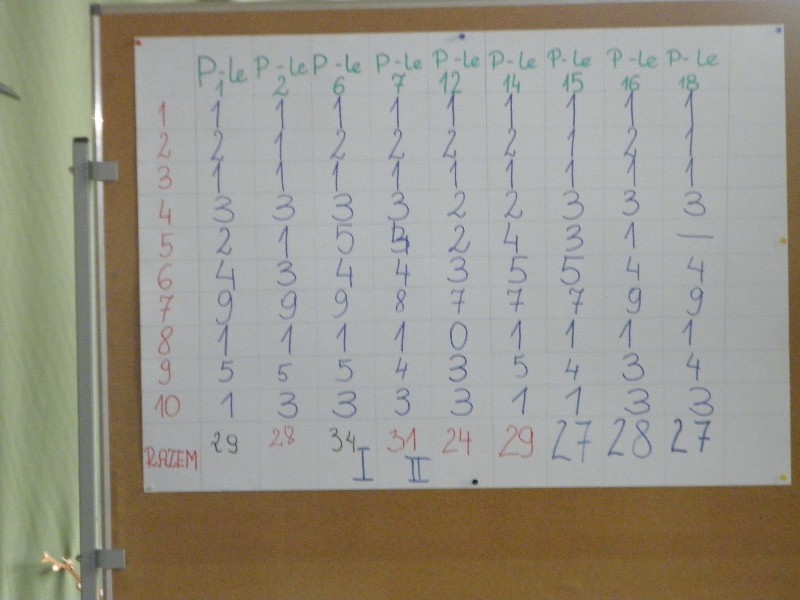 P-le P-le P-le P-le P-le P-le P-le P-le P-le
1 2 6 7 12 14 15 16 18
1 1 1 1 1 1 1 1 1 1
2 2 1 2 2 2 2 1 2 1
3 1 1 1 1 1 1 1 1 1
4 3 3 3 3 2 2 3 3 3
5 2 1 5 4 2 4 3 1 —
6 4 3 4 4 3 5 5 4 4
7 9 9 9 8 7 7 7 9 9
8 1 1 1 1 0 1 1 1 1
9 5 5 5 4 3 5 4 3 4
10 1 3 3 3 3 1 1 3 3
RAZEM 29 28 34 31 24 29 27 28 27
I II